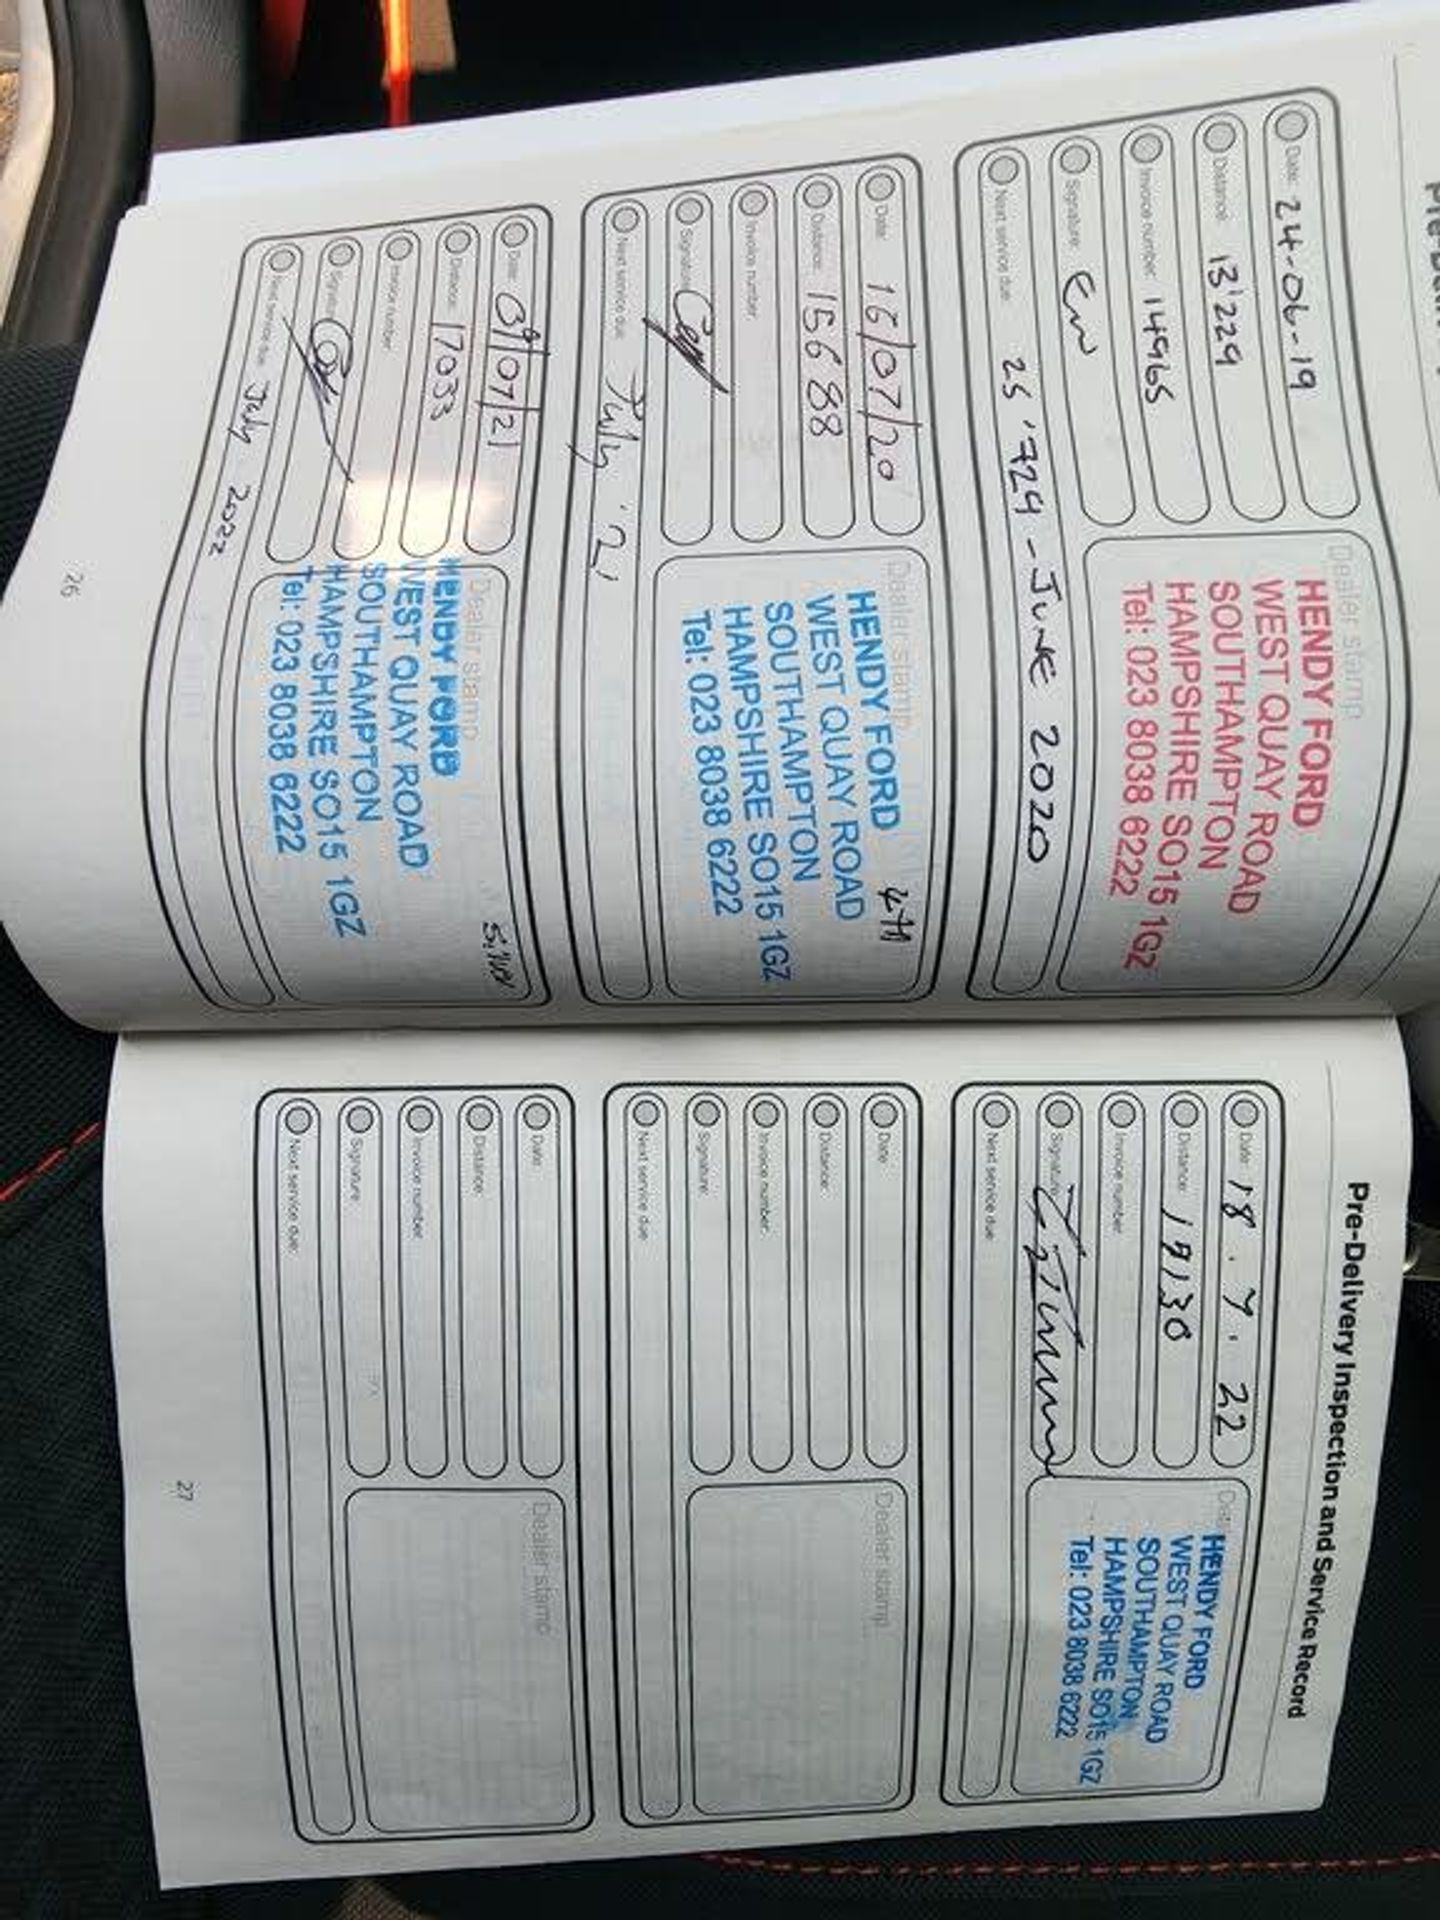 Date: 24-06-19
Distance: 13'229
Invoice number: 14965
Signature:
Next service due: 25'729 - JUNE 2020
Dealer stamp
HENDY FORD
WEST QUAY ROAD
SOUTHAMPTON
HAMPSHIRE SO15 1GZ
Tel: 023 8038 6222
Date: 16/07/20
Distance: 15688
Invoice number:
Signature:
Next service due: July '21
Dealer stamp
HENDY FORD
WEST QUAY ROAD
SOUTHAMPTON
HAMPSHIRE SO15 1GZ
Tel: 023 8038 6222
Date: /07/21
Distance: 17033
Invoice number
Signature
Next service due July 2022
Dealer stamp
Silver
HENDY FORD
WEST QUAY ROAD
SOUTHAMPTON
HAMPSHIRE SO15 1GZ
Tel: 023 8038 6222
26
Pre-Delivery Inspection and Service Record
Date: 18.7.22
Distance: 19130
Invoice number:
Signature:
Next service due:
HENDY FORD
WEST QUAY ROAD
SOUTHAMPTON
HAMPSHIRE SO15 1GZ
Tel: 023 8038 6222
Date:
Distance:
Invoice number:
Signature:
Next service due:
Dealer stamp
Date:
Distance:
Invoice number:
Signature:
Next service due:
Dealer stamp
27